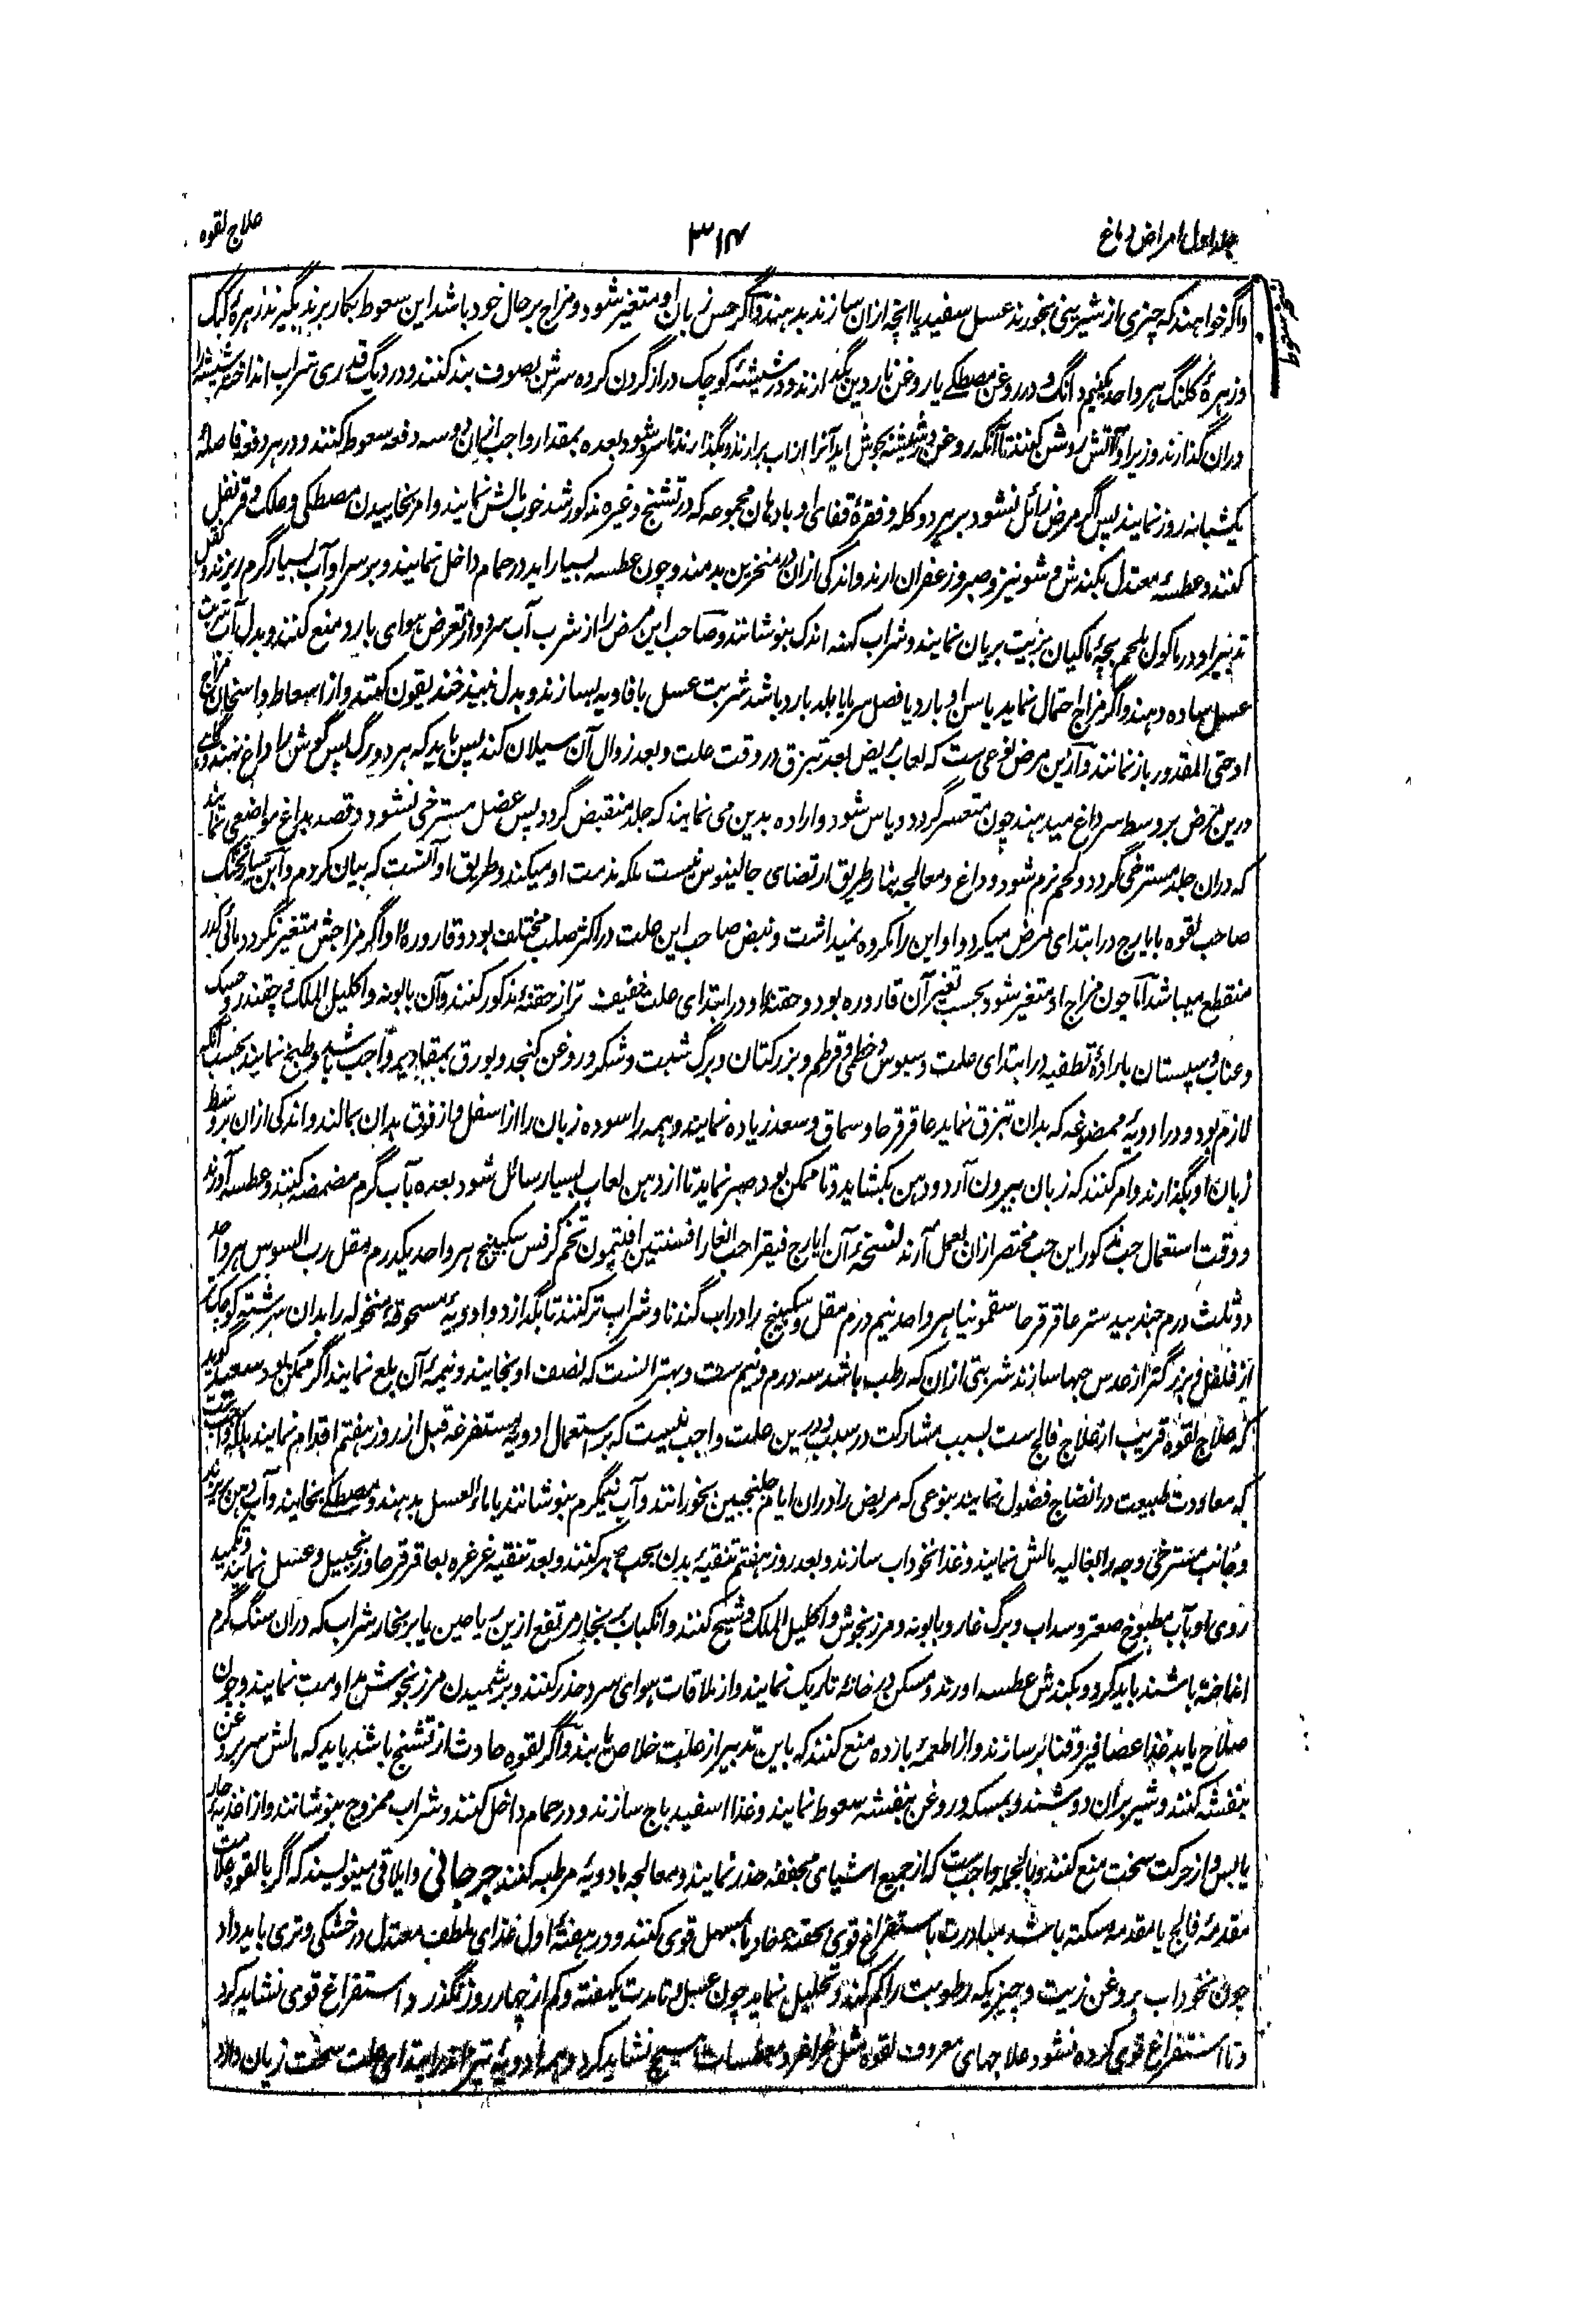 جلد اول امراض دماغ
۳۱۴
علاج لقوه
واگر خواهند که چیزی از شیرینی بخورند عسل سفید یا انچه ازان سازند بدهند واگر حس زبان او متغیر شود و مزاج بر حال خود باشد این سعوط بکار برند بگیرند زهرهٔ کبک
وزهرهٔ کلنگ هر واحد یکنیم دانگ و در روغن مصطکے یا روغن ناردین بگدازند و در شیشهٔ کوچک دراز گردن کرده سرش بصوف بند کنند و در دیگ قدری شراب انداخته شیشه را
دران گذارند و زیر او آتش روشن کنند تا آنکه روغن در شیشه بجوش اید آنرا ازاب برارند و بگذارند تا سرد شود بعده بمقدار واجب ازان دو سه دفعه سعوط کنند و در هر دفعه فاصلهٔ
یکشبانه روز نمایند پس اگر مرض زائل نشود بر هر دو کله و فقرهٔ قفای او بادهان مجموعه که در تشنج وغیره مذکور شد خوب مالش نمایند و امر بخاییدن مصطکی و علک و قرنفل
کنند و عطسهٔ معتدل بکندش و شونیز و صبر و زعفران ارند و اندکی ازان در منخرین بدمند و چون عطسه بسیار اید در حمام داخل نمایند و بر سر او آب بسیار گرم ریزند و
تدبیر او در ماکول بلحم بچهٔ ماکیان بزیت بریان نمایند و شراب کهنه اندک بنوشانند و صاحب این مرض را از شرب آب سرد و از تعرض هوای بارد منع کنند و بدل آب شربت
عسل ساده دهند واگر مزاج احتمال نماید یا سن او بارد یا فصل سرما یا بلد بارد باشد شربت عسل بافاویه بسازند و بدل نبیذ خندیقون کنند و از اسعاط و اسخان مزاج
او حتی المقدور باز نمانند و ازین مرض نوعی ست که لعاب مریض بعد تبزق در وقت علت و بعد زوال آن سیلان کند پس باید که هر دو رگ پس گوش را داغ نهند و گاهے
درین مرض بر وسط سر داغ میدهند چون متعسر گردد و یاس شود و اراده بدین می نمایند که جلد منقبض گردد پس عضل مسترخی نشود و قصد بداغ مواضعی نمایند
که دران جلد مسترخی گردد و لحم نرم شود و داغ و معالجه بنار طریق ارتضای جالینوس نیست بلکه مذمت او میکند و طریق او آنست که بیان کردم و ابن سیار
صاحب لقوه بایارج در ابتدای مرض میکرد و او این را مکروه نمیداشت و نبض صاحب این علت در اکثر صلب مختلف بود و قارورهٔ او اگر مزاجش متغیر نگردد مائی کدر
منقطع میباشد اما چون مزاج او متغیر شود بحسب تغیر آن قاروره بود و حقنهٔ او در ابتدای علت خفیف تر از حقنهٔ مذکور کنند و آن بابونه و اکلیل الملک و چقندر و حسک
و عناب و سپستان باراده تطفیه در ابتدای علت و سبوس و خطمی و قرطم و بزرکتان و برگ شبت و شکر و روغن کنجد و بورق بمقادیر واجب باشد و طبخ نمایند بحسب آنکه
لازم بود و در ادویهٔ ممضوغه که بدان تبزق نماید عاقرقرحا و سماق و سعد زیاده نمایند و همه را سوده زبان را از اسفل و از فوق بدان بمالند و اندکی ازان بر وسط
زبان او بگذارند و امر کنند که زبان بیرون آرد و دهن بکشاید و تا ممکن بود صبر نماید تا از دهن لعاب بسیار سائل شود بعده بآب گرم مضمضه کنند و عطسه آورند
و وقت استعمال حب مذکور این حب مختصر ازان بعمل آرند نسخهٔ آن ایارج فیقرا حب الغار افسنتین افتیمون تخم کرفس سکبینج هر واحد یکدرم مقل رب السوس هر واحد
دو ثلث درم جندبیدستر عاقرقرحا سقمونیا هر واحد نیم درم مقل و سکبینج را دراب گندنا و شراب تر کنند تا بگدازد و ادویهٔ مسحوقهٔ منخوله را بدان سرشته کوچکتر
از فلفل و بزرگتر از عدس حبها سازند شربتی ازان که رطب باشد سه درم و نیم ست و بهتر انست که نصف او بخایند و نیمهٔ آن بلع نمایند اگر ممکن بود سعید گوید
که علاج لقوه قریب از علاج فالج ست بسبب مشارکت در سبب و درین علت واجب نیست که بر استعمال ادویه مستفرغه قبل از روز هفتم اقدام نمایند بلکه واجب ست
که معاودت طبیعت در انضاج فضول نمایند بنوعی که مریض را دران ایام جلنجبین بخورانند و آب نیمگرم بنوشانند یا ماء العسل بدهند و مصطکے بخایند و آب دهن بریزند
و جانب مسترخی وجه را بغالیه مالش نمایند و غذا نخوداب سازند و بعد روز هفتم تنقیهٔ بدن بحب صبر کنند و بعد تنقیه غرغره بعاقرقرحا و زنجبیل و عسل نمایند و تکمید
روی او بآب مطبوخ صعتر و سداب و برگ غار و بابونه و مرزنجوش و اکلیل الملک و شیح کنند و انکباب بر بخار مرتفع ازین ریاحین یا بر بخار شراب که دران سنگ گرم
انداخته باشند باید کرد و بکندش عطسه اورند و مسکن در خانهٔ تاریک نمایند و از ملاقات هوای سرد حذر کنند و بر شمیدن مرزنجوش مداومت نمایند و چون
صلاح یابد غذا عصافیر و قنابر سازند و از اطعمهٔ بارده منع کنند که باین تدبیر از علت خلاص یابند واگر لقوه حادث از تشنج باشد باید که مالش سر بروغن
بنفشه کنند و شیر بران دوشند و بمسکه و روغن بنفشه سعوط نمایند و غذا اسفیدباج سازند و در حمام داخل کنند و شراب ممزوج بنوشانند و از اغذیه حار
یابس و از حرکت سخت منع کنند و بالجمله واجب ست که از جمیع اشیای مجففه حذر نمایند و معالجه بادویهٔ مرطبه کنند جرجانی و ایلاقی مینویسند که اگر با لقوه علامت
مقدمهٔ فالج یا مقدمه سکته باشد مبادرت باستفراغ قوی بحقنهٔ حاد یا مسهل قوی کنند و در هفتهٔ اول غذای ملطف معتدل در خشکی و تری باید داد
چون نخوداب بروغن زیت و چیزیکه رطوبت را کم کند و تحلیل نماید چون عسل و تا مدت یکهفته و کم از چهار روز نگذرد استفراغ قوی نشاید کرد
و تا استفراغ قوی کرده نشود علاجهای معروف لقوه مثل غراغر و معطسات هیچ نشاید کرد و همه ادویهٔ تیز در ابتدای علت سخت زیان دارد